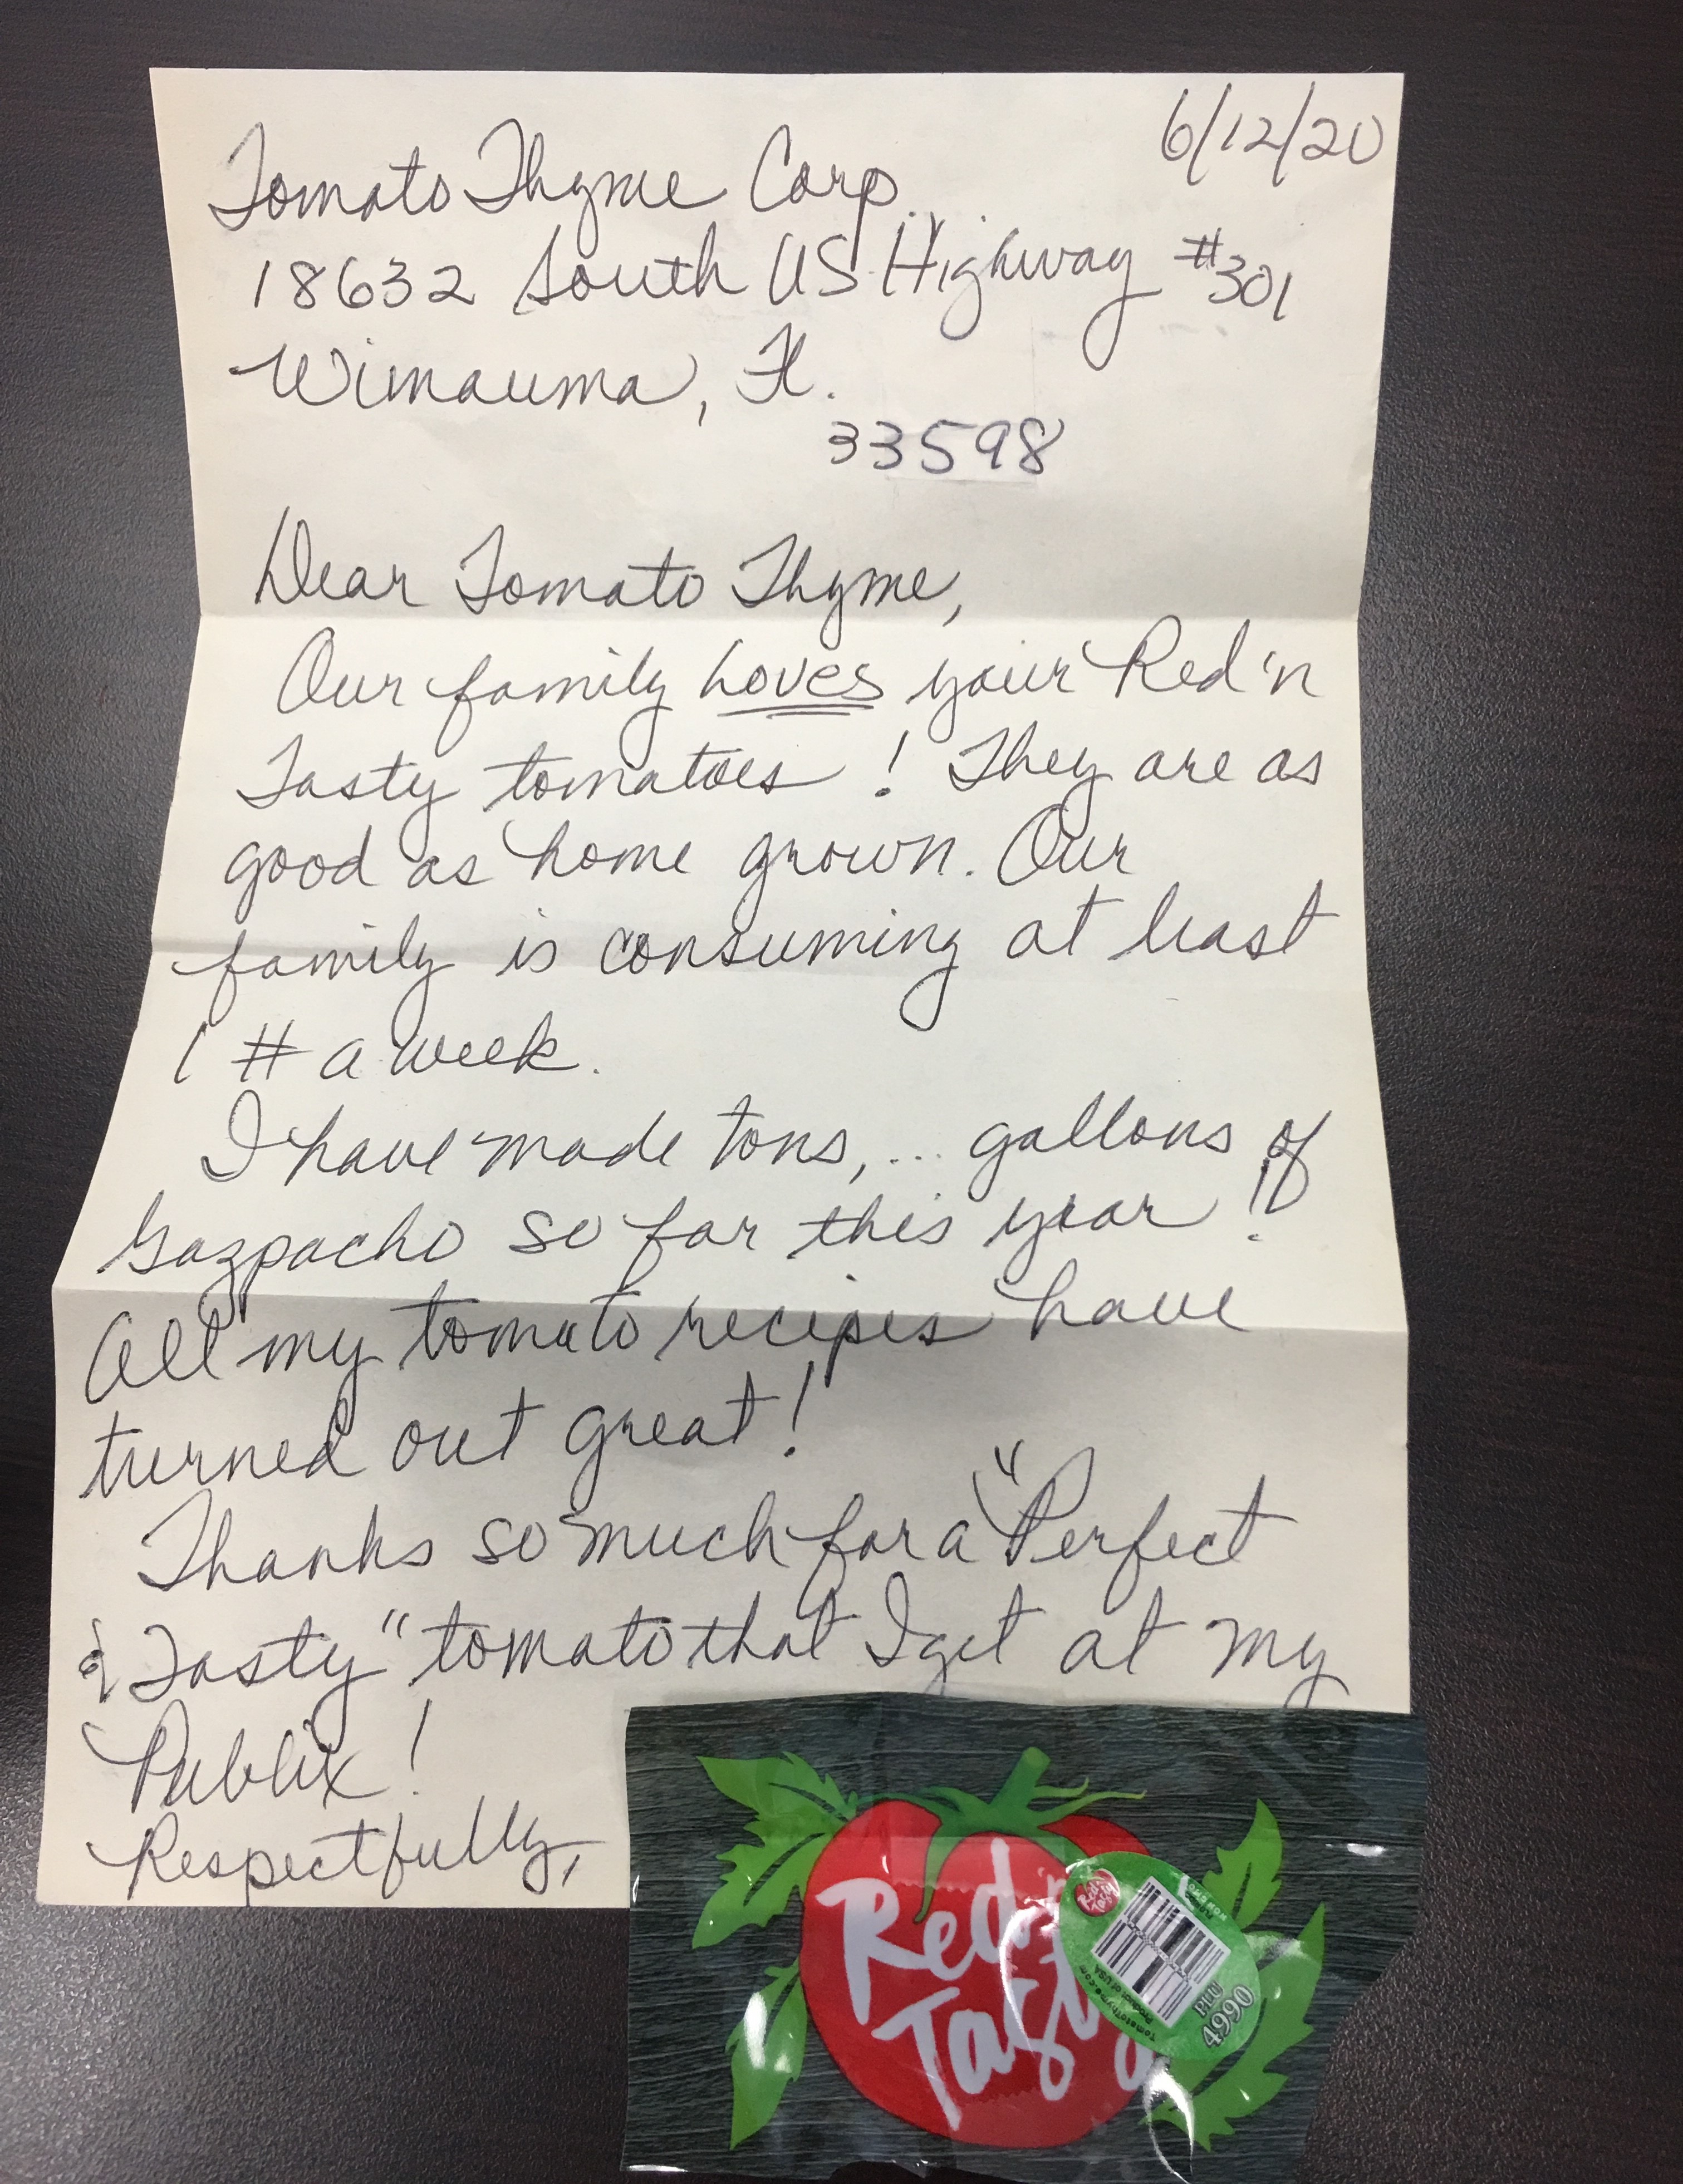 6/12/20
Tomato Thyme Corp.
18632 South US Highway #301
Wimauma, Fl.
33598
Dear Tomato Thyme,
Our family Loves your Red 'n
Tasty tomatoes! They are as
good as home grown. Our
family is consuming at least
1 # a week.
I have made tons,... gallons of
Gazpacho so far this year!
All my tomato recipes have
turned out great!
Thanks so much for a "Perfect
& Tasty" tomato that I get at my
Publix!
Respectfully,
Red
Tasty
Red
Tasty
TomatoThyme.com
Product of USA
PLU
4990